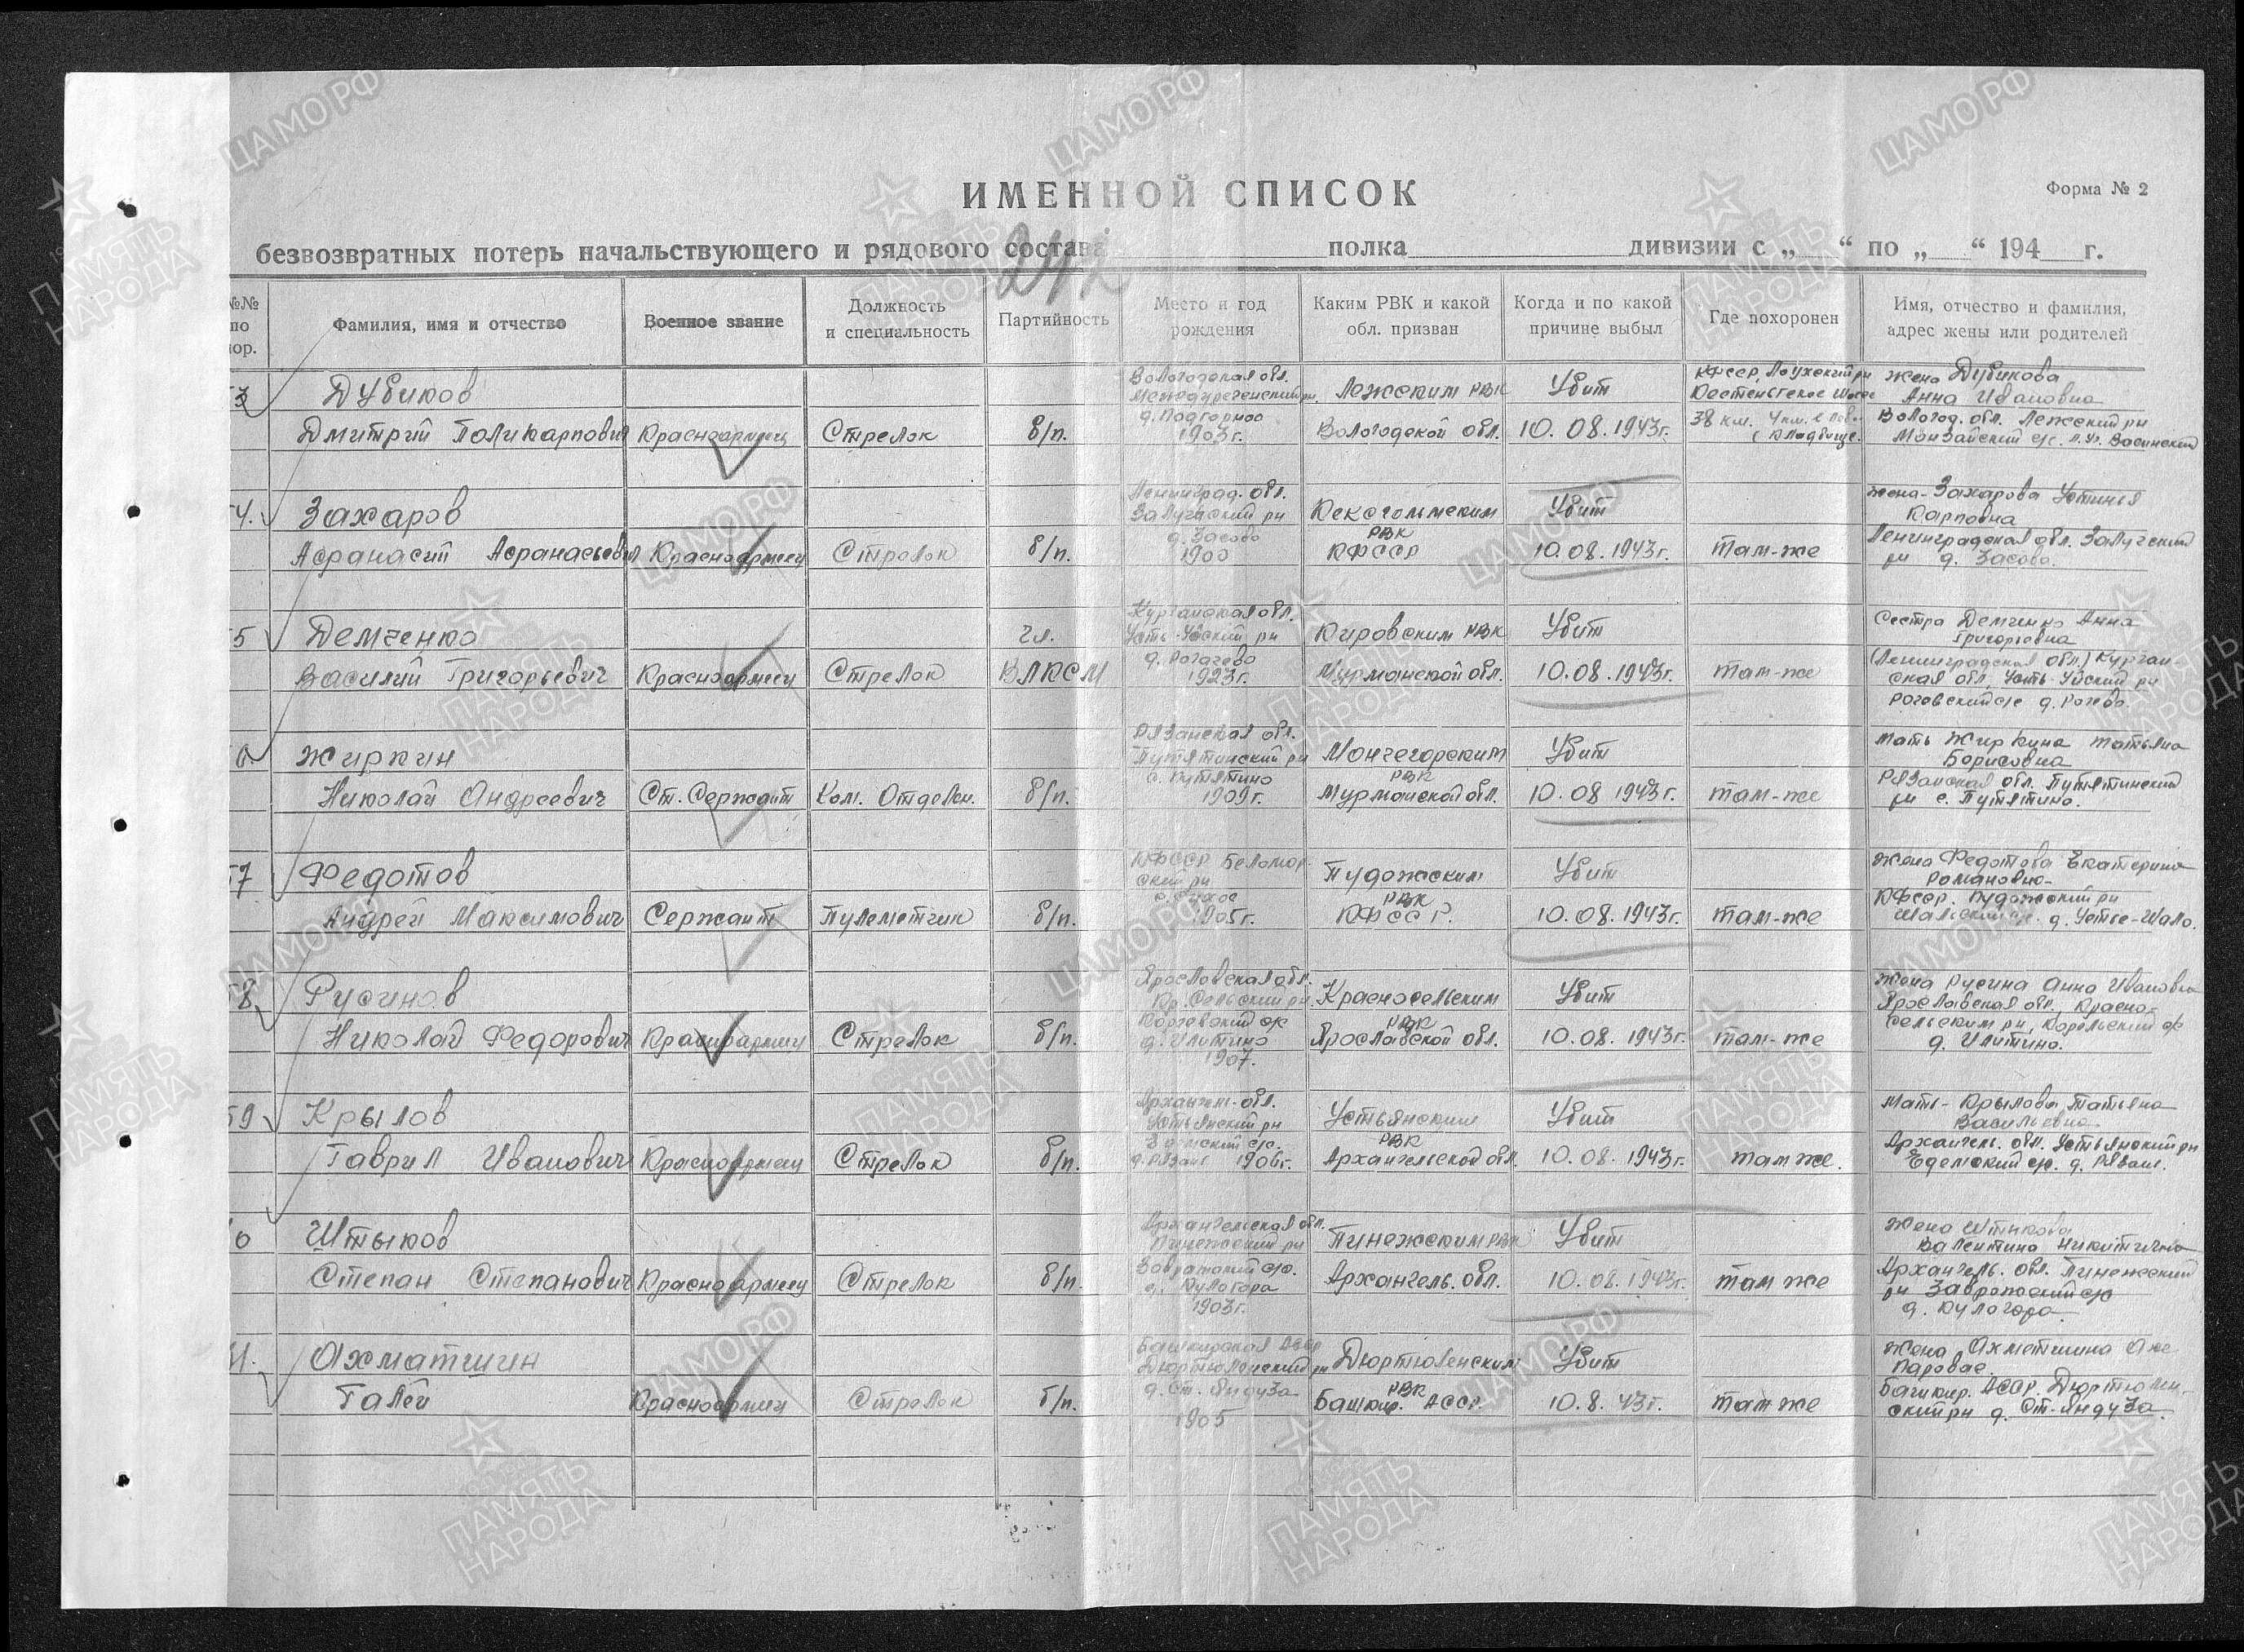 ИМЕННОЙ СПИСОК
Форма № 2
безвозвратных потерь начальствующего и рядового состава полка дивизии с „ “ по „ “ 194 г.
№№ по пор.
Фамилия, имя и отчество
Военное звание
Должность и специальность
Партийность
Место и год рождения
Каким РВК и какой обл. призван
Когда и по какой причине выбыл
Где похоронен
Имя, отчество и фамилия, адрес жены или родителей
Дубиков
Дмитрий Поликарпович
Красноармеец
Стрелок
б/п.
Вологодская обл.
Междуреченский рн.
д. Подгорное
1903г.
Лежским РВК
Вологодской обл.
Убит
10.08.1943г.
КФССР, Лоухский рн
Кестеньгское Шоссе
38 км.
Кладбище.
жена Дубикова
Анна Ивановна
Вологод. обл. Лежский рн
4.
Захаров
Афанасий Афанасьевич
Красноармеец
Стрелок
б/п.
Ленинград. обл.
Залучский рн
д. Засово
1900
Кексгольмским
РВК
КФССР
Убит
10.08.1943г.
там-же
жена-Захарова Устинья
Карповна
Ленинградская обл. Залучский
рн д. Засово.
5
Демченко
Василий Григорьевич
Красноармеец
Стрелок
чл.
ВЛКСМ
Курганская обл.
Усть-Уйский рн
д. Рогачево
1923г.
Кировским РВК
Мурманской обл.
Убит
10.08.1943г.
там-же
Сестра Демченко Анна
Григорьевна
(Ленинградская обл.) Курган-
ская обл. Усть-Уйский рн
Жиркин
Николай Андреевич
Ст. Сержант
Ком. Отделен.
б/п.
Рязанская обл.
Путятинский рн
с. Путятино
1909г.
Мончегорским
РВК
Мурманской обл.
Убит
10.08 1943г.
там-же
Мать Жиркина Татьяна
Борисовна
Рязанская обл. Путятинский
рн с. Путятино.
57
Федотов
Андрей Максимович
Сержант
Пулеметчик
б/п.
КФССР Беломор-
ский рн
с. Сухое
1905г.
Пудожским
РВК
КФССР.
Убит
10.08.1943г.
там-же
жена Федотова Екатерина
Романовна-
КФССР. Пудожский рн
Шальский с/с. д. Устье-Шала.
58
Русинов
Николай Федорович
Красноармеец
Стрелок
б/п.
Ярославская обл.
Кр. Сельский рн
д. Илитино
1907.
Красносельским
РВК
Ярославской обл.
Убит
10.08.1943г.
там-же
жена Русина Анна Ивановна
Ярославская обл., Красно-
сельским рн,
д. Илитино.
59
Крылов
Гаврил Иванович
Красноармеец
Стрелок
б/п.
Архангел. обл.
Устьянский рн
Едемский с/с.
1906г.
Устьянским
РВК
Архангельской обл.
Убит
10.08.1943г.
там же.
Мать-Крылова Татьяна
Васильевна
Архангель. обл. Устьянский рн
Едемский с/с.
Штыков
Степан Степанович
Красноармеец
Стрелок
б/п.
Архангельская обл.
Пинежский рн
д. Кулогора
1903г.
Пинежским РВК
Архангель. обл.
Убит
10.08.1943г.
там же
Жена Штыкова
Валентина Никитична
Архангель. обл. Пинежский
д. Кулогора.
Ахматшин
Галей
Красноармеец
Стрелок
б/п.
Башкирская АССР
Дюртюлинский рн
д. Ст. Яндуза
1905
Дюртюленским
РВК
Башкир. АССР
Убит
10.8.43г.
там же
Жена Ахметшина
Башкир. АССР. Дюртюлин-
ский рн д. Ст-Яндуза.
ЦАМО.РФ
ПАМЯТЬ НАРОДА